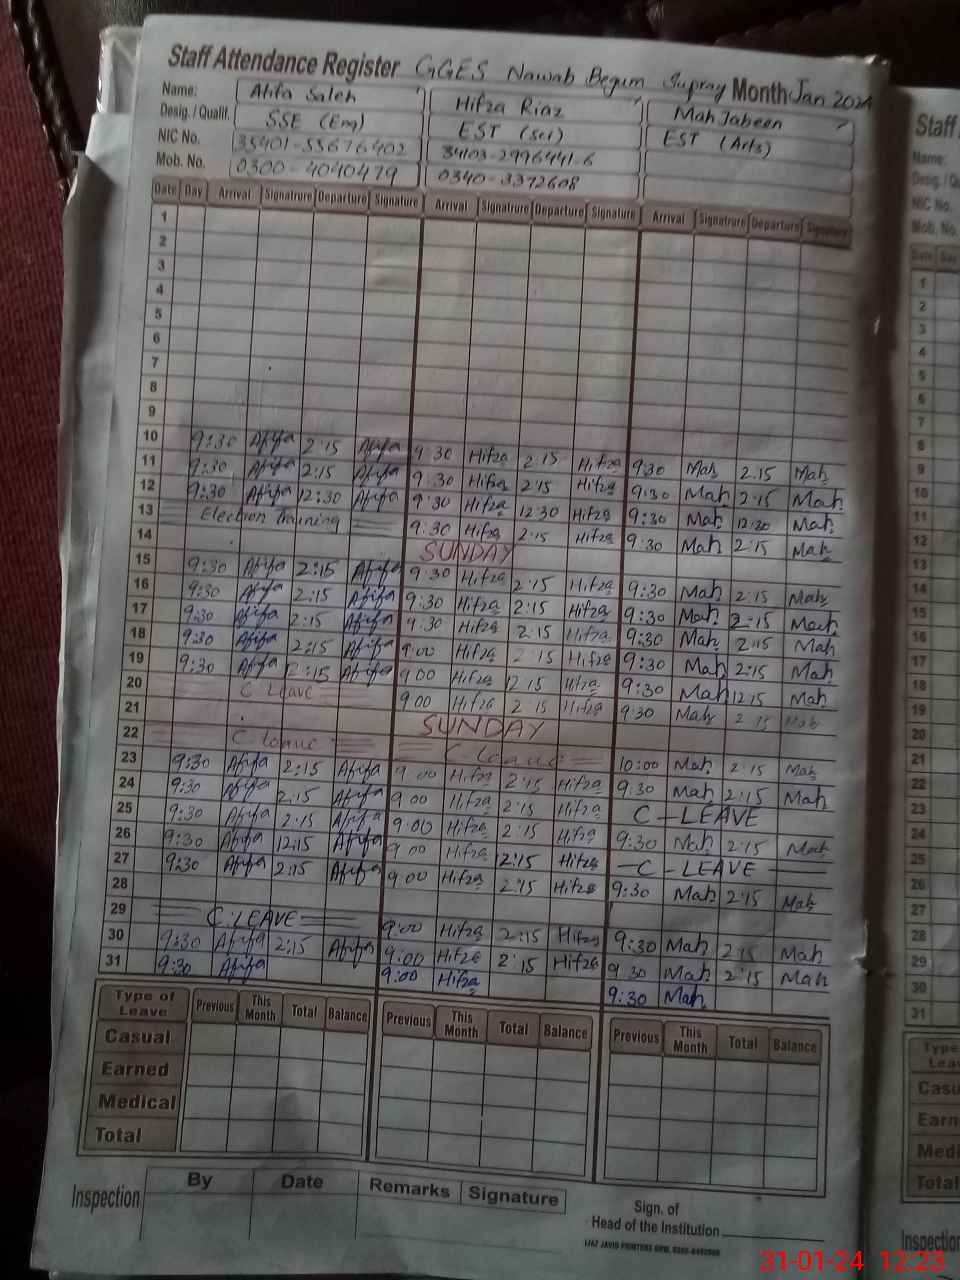 Staff Attendance Register GGES Nawab Begum Supray Month Jan 2024
Name: Afifa Saleh Hifza Riaz Mah Jabeen
Desig. / Qualif. SSE (Eng) EST (Sci) EST (Arts)
NIC No. 35401-55676402 34103-2996441-6
Mob. No. 0300-4040479 0340-3372608
Date Day Arrival Signatrure Departure Signature Arrival Signatrure Departure Signature Arrival Signatrure Departure Signature
1
2
3
4
5
6
7
8
9
10 9:30 Afifa 2:15 Afifa 9 30 Hifza 2:15 Hifza 9:30 Mah 2.15 Mah
11 9:30 Afifa 2:15 Afifa 9:30 Hifza 2:15 Hifza 9:30 Mah 2:15 Mah
12 9:30 Afifa 12:30 Afifa 9:30 Hifza 12 30 Hifza 9:30 Mah 12:30 Mah
13 Election Training 9:30 Hifza 2:15 Hifza 9:30 Mah 2:15 Mah
14 SUNDAY
15 9:30 Afifa 2:15 Afifa 9:30 Hifza 2:15 Hifza 9:30 Mah 2:15 Mah
16 9:30 Afifa 2:15 Afifa 9:30 Hifza 2:15 Hifza 9:30 Mah 2:15 Mah
17 9:30 Afifa 2:15 Afifa 9:30 Hifza 2:15 Hifza 9:30 Mah 2:15 Mah
18 9:30 Afifa 2:15 Afifa 9:00 Hifza 2:15 Hifza 9:30 Mah 2:15 Mah
19 9:30 Afifa 12:15 Afifa 9 00 Hifza 12 15 Hifza 9:30 Mah 12:15 Mah
20 C Leave 9 00 Hifza 2 15 Hifza 9:30 Mah 2 15 Mah
21 SUNDAY
22 C leave C Leave 10:00 Mah 2:15 Mah
23 9:30 Afifa 2:15 Afifa 9 00 Hifza 2:15 Hifza 9:30 Mah 2:15 Mah
24 9:30 Afifa 2:15 Afifa 9 00 Hifza 2:15 Hifza C - LEAVE
25 9:30 Afifa 2:15 Afifa 9:00 Hifza 2:15 Hifza 9:30 Mah 2:15 Mah
26 9:30 Afifa 12:15 Afifa 9 00 Hifza 12:15 Hifza - C - LEAVE
27 9:30 Afifa 2:15 Afifa 9:00 Hifza 2:15 Hifza 9:30 Mah 2:15 Mah
28
29 C. LEAVE 9:00 Hifza 2:15 Hifza 9:30 Mah 2:15 Mah
30 9:30 Afifa 2:15 Afifa 9:00 Hifza 2:15 Hifza 9 30 Mah 2:15 Mah
31 9:30 Afifa 9:00 Hifza 9:30 Mah
Type of Leave Previous This Month Total Balance Previous This Month Total Balance Previous This Month Total Balance
Casual
Earned
Medical
Total
Inspection By Date Remarks Signature
Sign. of
Head of the Institution
IJAZ JAVID PRINTERS GRW.
31-01-24 12:23
Staff
Name:
NIC No.
Mob. No.
Date Day
1
2
3
4
5
6
7
8
9
10
11
12
13
14
15
16
17
18
19
20
21
22
23
24
25
26
27
28
29
30
31
Total
Inspection